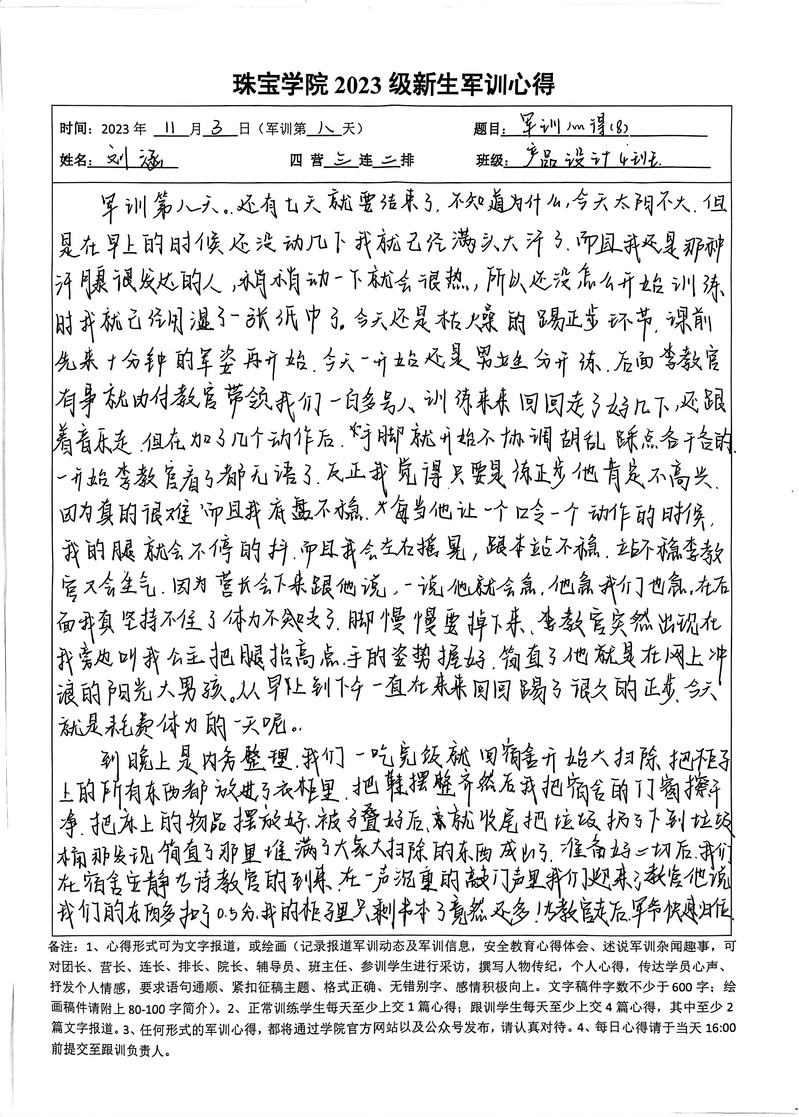 珠宝学院 2023 级新生军训心得
时间：2023 年 11 月 3 日（军训第 八 天） 题目：军训心得(8)
姓名：刘涵 四 营 三 连 二 排 班级：产品设计4班
军训第八天。还有七天就要结束了，不知道为什么，今天太阳不大，但
是在早上的时候还没动几下我就已经满头大汗了，而且我还是那种
汗腺很发达的人，稍稍动一下就会很热，所以还没怎么开始训练
时我就已经用湿了一张纸巾了。今天还是枯燥的踢正步环节，课前
先来十分钟的军姿再开始，今天一开始还是男女生分开练，后面李教官
有事就由付教官带领我们一百多号人，训练来来回回走了好几下，还跟
着音乐走，但在加了几个动作后，手脚就开始不协调胡乱踩点各干各的，
一开始李教官看了都无语了，反正我觉得只要是练正步他肯定不高兴，
因为真的很难，而且我底盘不稳，每当他让一个口令一个动作的时候，
我的腿就会不停的抖，而且我会左右摇晃，跟本站不稳，站不稳李教
官又会生气，因为营长会下来跟他说，一说他就会急，他急我们也急，在后
面我真坚持不住了体力不支了，脚慢慢要掉下来，李教官突然出现在
我旁边叫我公主把腿抬高点，手的姿势握好，简直了他就是在网上冲
浪的阳光大男孩。从早上到下午一直在来来回回踢了很久的正步，今天
就是耗费体力的一天呢。
到晚上是内务整理，我们一吃完饭就回宿舍开始大扫除，把柜子
上的所有东西都放进了衣柜里，把鞋摆整齐然后我把宿舍的门窗擦干
净，把床上的物品摆放好，被子叠好后，就收尾把垃圾扔了下到垃圾
桶那发现简直了那里堆满了大家大扫除的东西成山了，准备好一切后，我们
在宿舍安静的等待教官的到来，在一声沉重的敲门声里我们迎来了教官他说
我们的东西多扣了0.5分，我的柜子里只剩书本了竟然还多！教官走后，军爷快速归位，
备注：1、心得形式可为文字报道，或绘画（记录报道军训动态及军训信息，安全教育心得体会、述说军训杂闻趣事，可
对团长、营长、连长、排长、院长、辅导员、班主任、参训学生进行采访，撰写人物传纪，个人心得，传达学员心声、
抒发个人情感，要求语句通顺、紧扣征稿主题、格式正确、无错别字、感情积极向上。文字稿件字数不少于 600 字；绘
画稿件请附上 80-100 字简介）。2、正常训练学生每天至少上交 1 篇心得；跟训学生每天至少上交 4 篇心得，其中至少 2
篇文字报道。3、任何形式的军训心得，都将通过学院官方网站以及公众号发布，请认真对待。4、每日心得请于当天 16:00
前提交至跟训负责人。